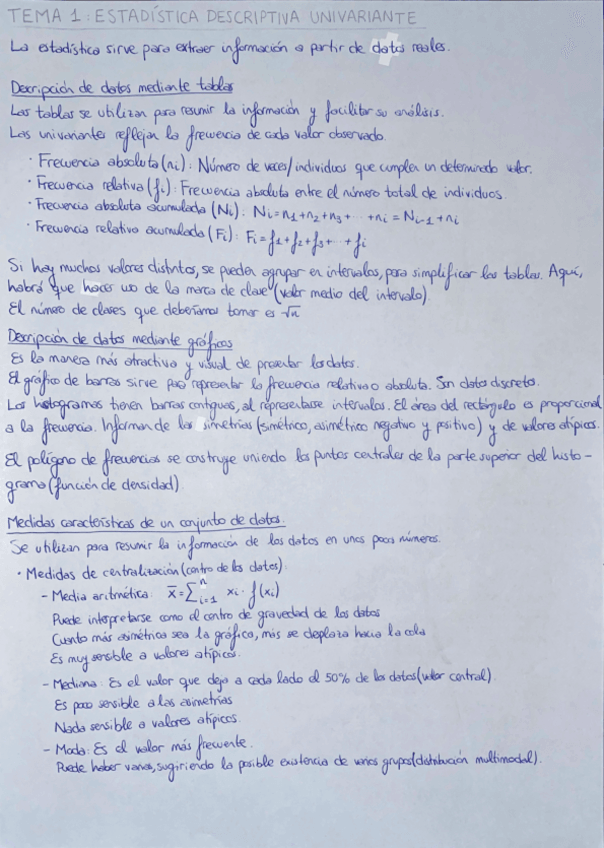 TEMA 1: ESTADÍSTICA DESCRIPTIVA UNIVARIANTE
La estadística sirve para extraer información a partir de datos reales.
Descripción de datos mediante tablas
Las tablas se utilizan para resumir la información y facilitar su análisis.
Las univariantes reflejan la frecuencia de cada valor observado.
· Frecuencia absoluta (ni): Número de veces/individuos que cumplen un determinado valor.
· Frecuencia relativa (fi): Frecuencia absoluta entre el número total de individuos.
· Frecuencia absoluta acumulada (Ni): Ni=n1+n2+n3+ ··· +ni = Ni-1 +ni
· Frecuencia relativa acumulada (Fi): Fi=f1+f2+f3+ ··· + fi
Si hay muchos valores distintos, se pueden agrupar en intervalos, para simplificar las tablas. Aquí,
habrá que hacer uso de la marca de clase (valor medio del intervalo).
El número de clases que deberíamos tomar es √n
Descripción de datos mediante gráficos
Es la manera más atractiva y visual de presentar los datos.
El gráfico de barras sirve para representar la frecuencia relativa o absoluta. Son datos discretos.
Los histogramas tienen barras contiguas, al representarse intervalos. El área del rectángulo es proporcional
a la frecuencia. Informan de las simetrías (simétrico, asimétrico negativo y positivo) y de valores atípicos.
El polígono de frecuencias se construye uniendo los puntos centrales de la parte superior del histo-
grama (función de densidad)
Medidas características de un conjunto de datos.
Se utilizan para resumir la información de los datos en unos pocos números.
· Medidas de centralización (centro de los datos):
- Media aritmética: x̄ = Σ i=1 n xi · f(xi)
Puede interpretarse como el centro de gravedad de los datos
Cuanto más asimétrica sea la gráfica, más se desplaza hacia la cola
Es muy sensible a valores atípicos.
- Mediana: Es el valor que deja a cada lado el 50% de los datos (valor central).
Es poco sensible a las asimetrías
Nada sensible a valores atípicos.
- Moda: Es el valor más frecuente.
Puede haber varias, sugiriendo la posible existencia de varios grupos (distribución multimodal).